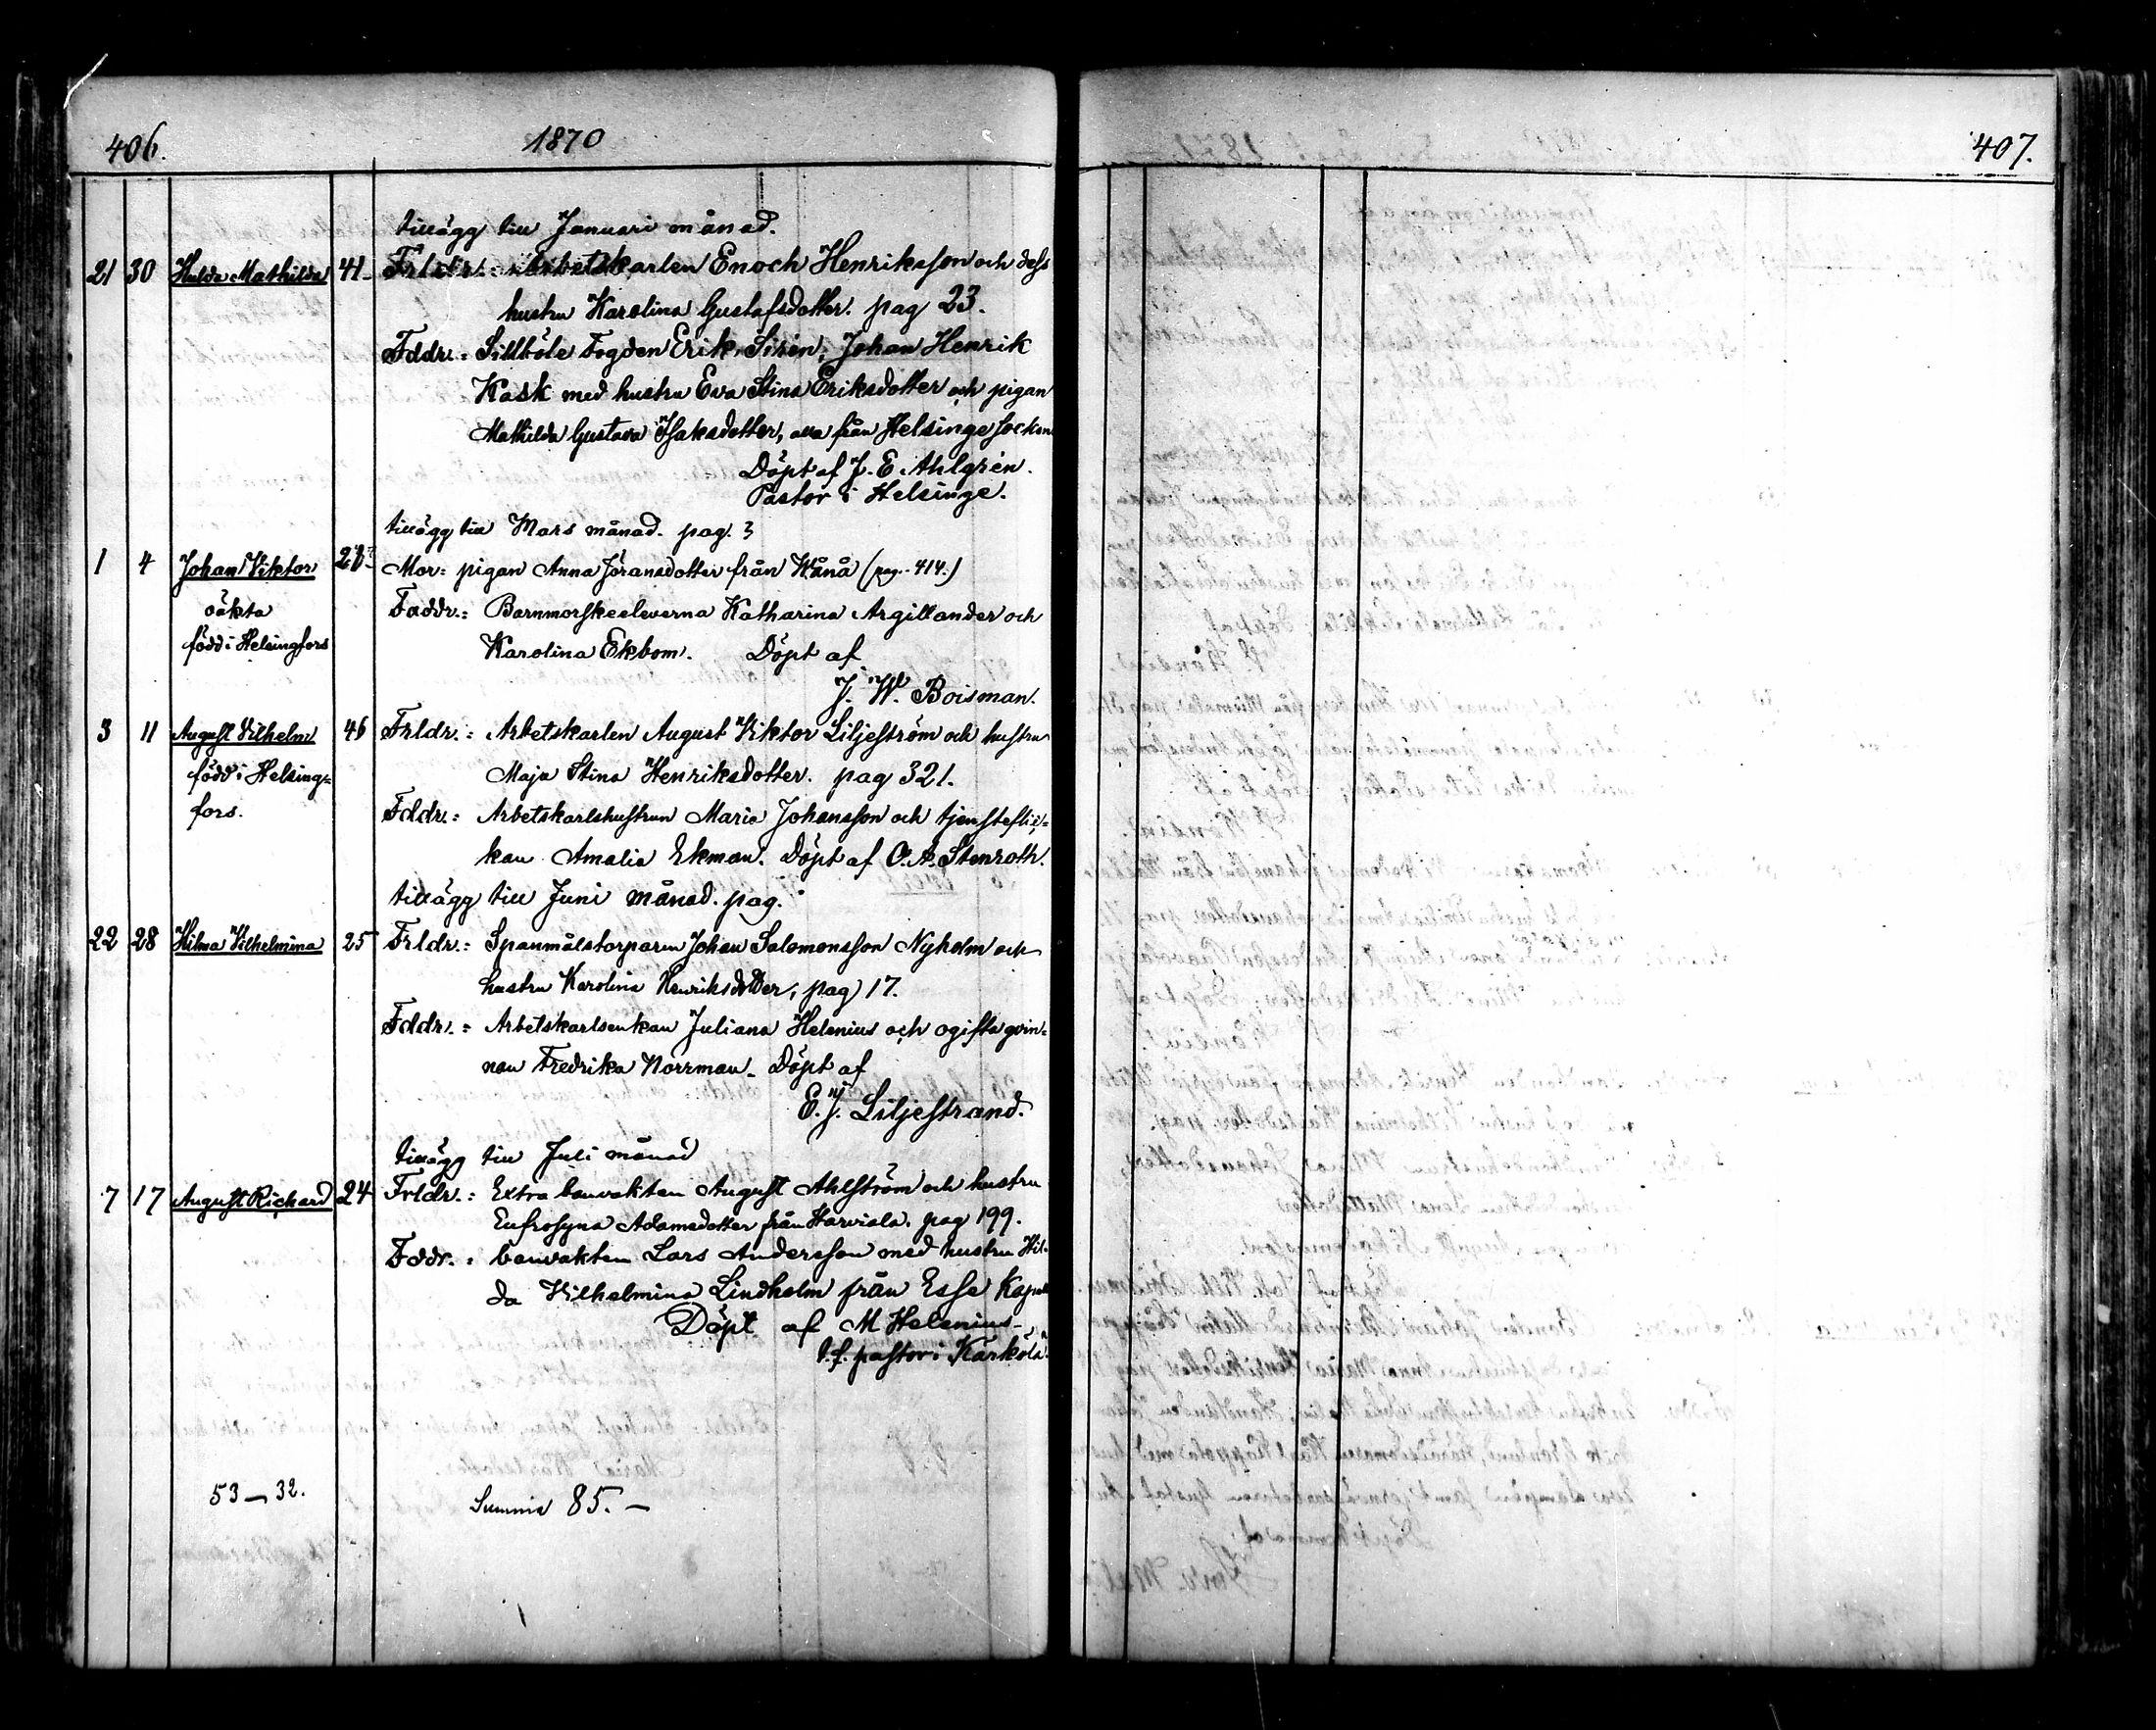 406.
1870
407.
tillägg till Januari månad.
21 30 Hulda Mathilda 41 Frldr.: Arbetskarlen Enoch Henriksson och dess
hustru Karolina Gustafsdotter. pag 23.
Fddr.: Sillböle Fogden Erik Sirén, Johan Henrik
Kask med hustru Eva Stina Eriksdotter och pigan
Mathilda Gustava Isaksdotter, alla från Helsinge Socken
Döpt af J. E. Ahlgrén.
Pastor i Helsinge.
tillägg till Mars månad. pag. 3
1 4 Johan Viktor Mor: pigan Anna Jöransdotter från Wånå (pag. 414.)
oäkta Faddr.: Barnmorskeeleverna Katharina Argillander och
född i Helsingfors Karolina Ekbom. Döpt af
J. W. Boisman.
3 11 August Vilhelm 46 Frldr.: Arbetskarlen August Viktor Liljeström och hustru
född i Helsing= Maja Stina Henriksdotter. pag 321.
fors. Fddr.: Arbetskarlshustrun Maria Johansson och tjensteflic=
kan Amalia Ekman. Döpt af C. A. Stenroth.
tillägg till Juni månad. pag.
22 28 Hilma Vilhelmina 25 Frldr.: Spanmålstorparen Johan Salomonsson Nyholm och
hustru Karolina Henriksdotter, pag 17.
Fddr.: Arbetskarlsenkan Juliana Helenius och ogifta qvin=
nan Fredrika Norrman. Döpt af
E. J. Liljestrand.
tillägg till Juli månad
7 17 August Richard 24 Frldr.: Extra banvakten August Ahlström och hustru
Eufrosyna Adamsdotter från Harviala. pag 199.
Fddr.: banvakten Lars Andersson med hustru Hil=
da Vilhelmina Lindholm från Esse Kapell
Döpt af M Helenius
t.f. pastor i Kärkölä.
53 — 32. Summa 85. —